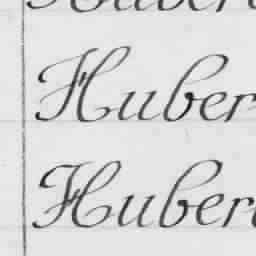 Huber
Huber